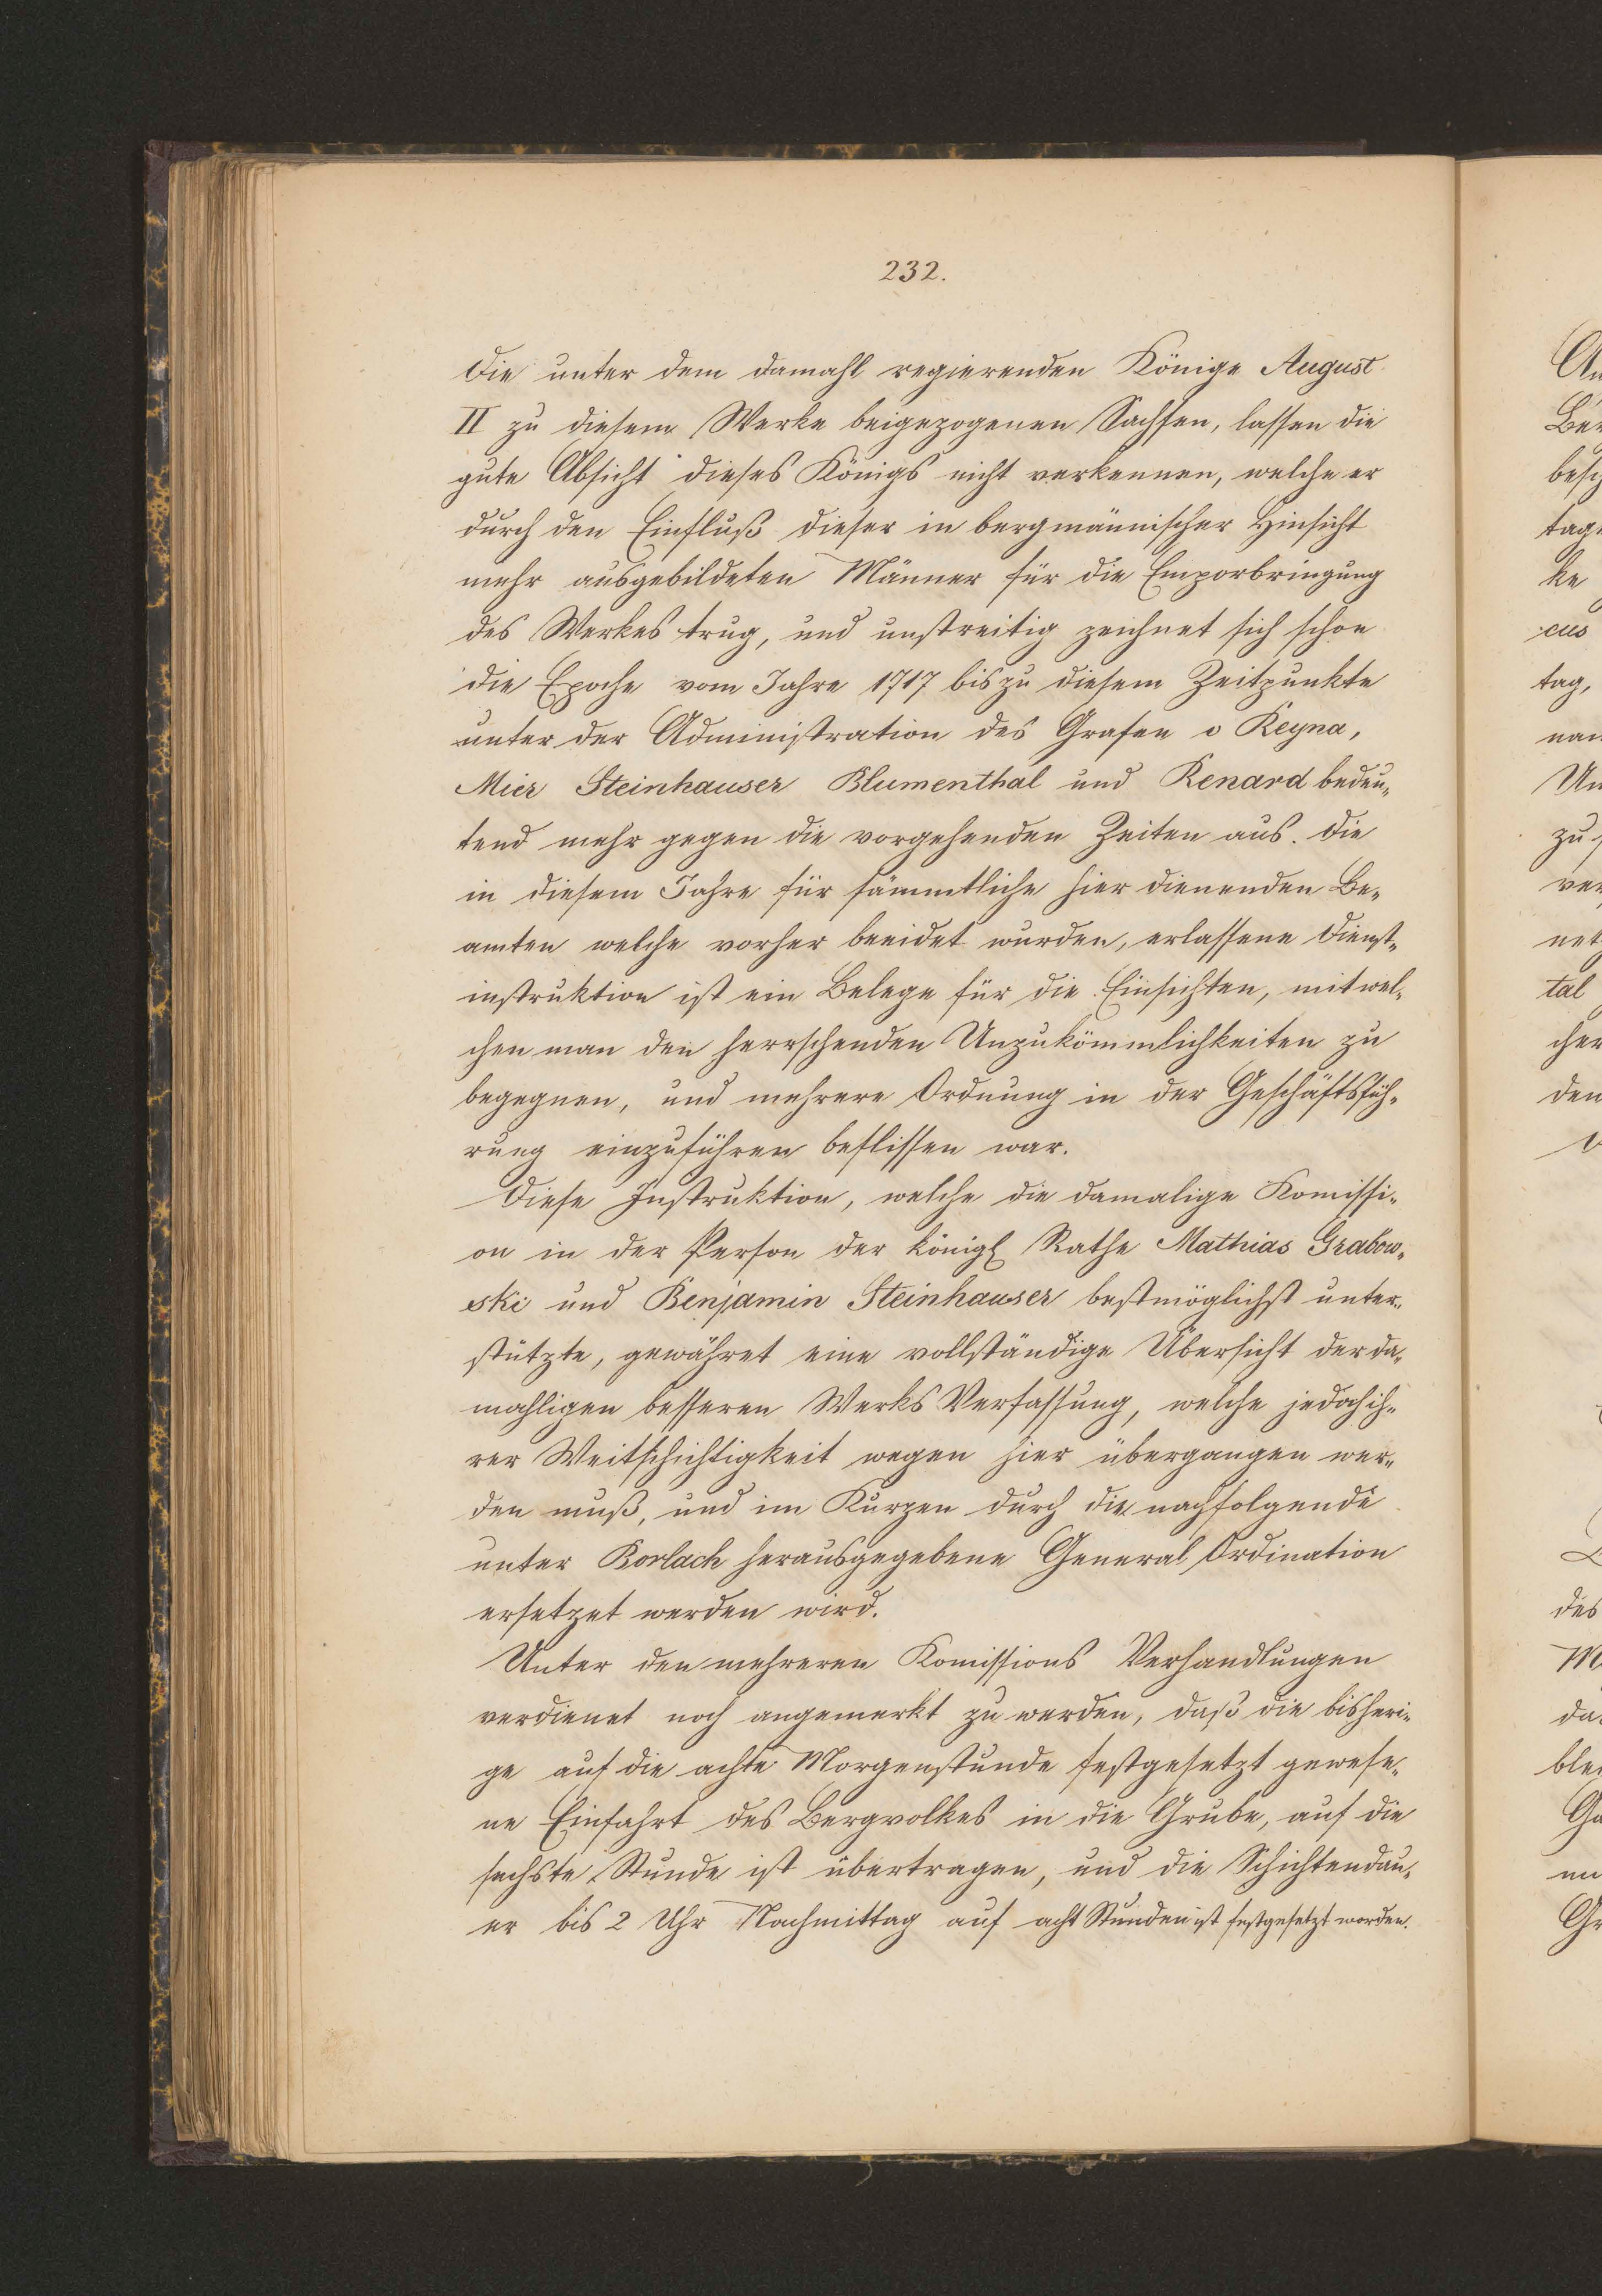 232.
Die unter dem damahl regierenden Könige August
II zu diesem Werke beigezogenen Sachsen, lassen die
gute Absicht dieses Königs nicht verkennen, welche er
durch den Einfluß dieser in bergmännischer Hinsicht
mehr ausgebildeten Männer für die Emporbringung
des Werkes trug, und unstreitig zeichnet sich schon
die Epoche vom Jahre 1717 bis zu diesem Zeitpunkte
unter der Administration des Grafen v Reyna,
Mier Steinhauser Blumenthal und Renard bedeu-
tend mehr gegen die vorgehenden Zeiten aus. Die
in diesem Jahre für sämmtliche hier dienenden Be-
amten welche vorher beeidet wurden, erlassene Dienst-
instruktion ist ein Belege für die Einsichten, mit wel-
chen man den herrschenden Unzukömmlichkeiten zu
begegnen, und mehrere Ordnung in der Geschäftsfüh-
rung einzuführen beflissen war.
Diese Instruktion, welche die damalige Komissi-
on in der Person der königl Rathe Mathias Grabow-
ski und Benjamin Steinhauser bestmöglichst unter-
stützte, gewähret eine vollständige Übersicht der da-
mahligen besseren Werks Verfassung, welche jedoch ih-
rer Weitschichtigkeit wegen hier übergangen wer-
den muß, und im Kurzen durch die nachfolgende
unter Borlach herausgegebene General Ordination
ersetzet werden wird.
Unter den mehreren Komissions Verhandlungen
verdienet noch angemerkt zu werden, daß die bisheri-
ge auf die achte Morgenstunde festgesetzt gewese-
ne Einfahrt des Bergvolkes in die Grube, auf die
sechste Stunde ist übertragen, und die Schichtendau-
er bis 2 Uhr Nachmittag auf acht Stunden ist festgesetzt worden.